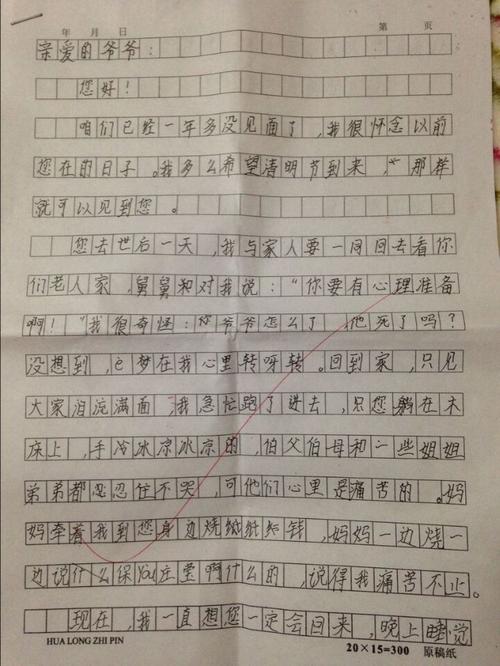 年 月 日 第 页
亲爱的爷爷:
您好!
咱们已经一年多没见面了,我很怀念以前
您在的日子。我多么希望清明节到来,那样
就可以见到您。
您去世后一天,我与家人要一同回去看你
们老人家,舅舅和对我说:“你要有心理准备
啊!”我很奇怪:你爷爷怎么了,他死了吗?
没想到,e梦在我心里转呀转。回到家,只见
大家泪流满面,我急忙跑了进去,只您躺在木
床上,手冷冰凉冰凉的,伯父伯母和一些姐姐
弟弟都忍住不哭,可他们心里是痛苦的。妈
妈牵着我到您身边烧纸钱,妈妈一边烧一
边说什么保 啊什么的,说得我痛苦不止。
现在,我一直想您一定会回来,晚上睡觉
HUA LONG ZHI PIN 20×15=300 原稿纸